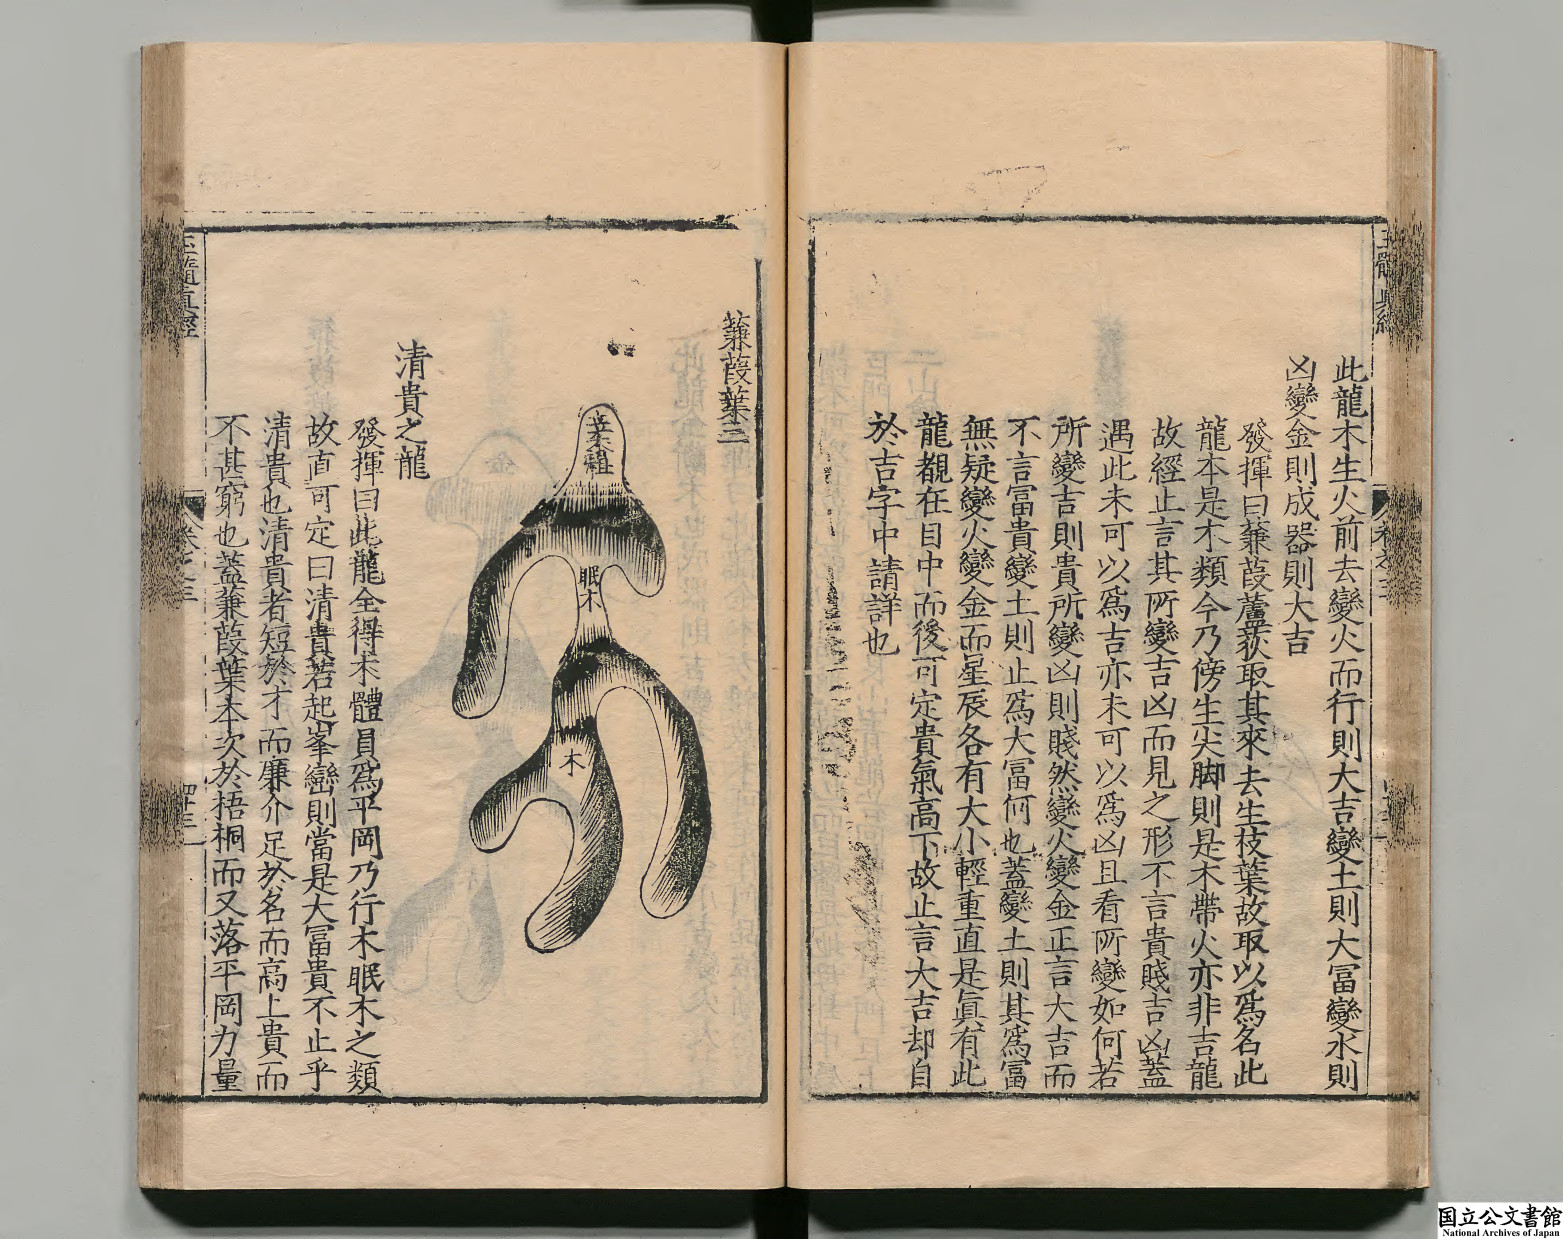 此龍木生火前去變火而行則大吉變土則大冨變水則
凶變金則成器則大吉
發揮曰蒹葭蘆荻取其來去生枝葉故取以爲名此
龍本是木類今乃傍生尖脚則是木帶火亦非吉龍
故經止言其所變吉凶而見之形不言貴賤吉凶蓋
遇此未可以爲吉亦未可以爲凶且看所變如何若
所變吉則貴所變凶則賤然變火變金正言大吉而
不言冨貴變土則止爲大冨何也蓋變土則其爲冨
無疑變火變金而星辰各有大小輕重直是眞有此
龍覩在目中而後可定貴氣高下故止言大吉却自
於吉字中請詳也
蒹葭葉三
祖
眠木
木
清貴之龍
發揮曰此龍全得木體員爲平岡乃行木眠木之類
故直可定曰清貴若起峯巒則當是大冨貴不止乎
清貴也清貴者短於才而廉介足於名而高上貴而
不甚窮也蓋蒹葭葉本次於捂桐而又落平岡力量
玉髓真經
国立公文書館
National Archives of Japan